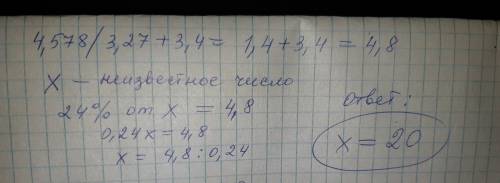 4,578/3,27+3,4= 1,4+3,4 = 4,8
X – неизвестное число
24% от X = 4,8
0,24x=4,8
x= 4,8:0,24
ответ:
x=20